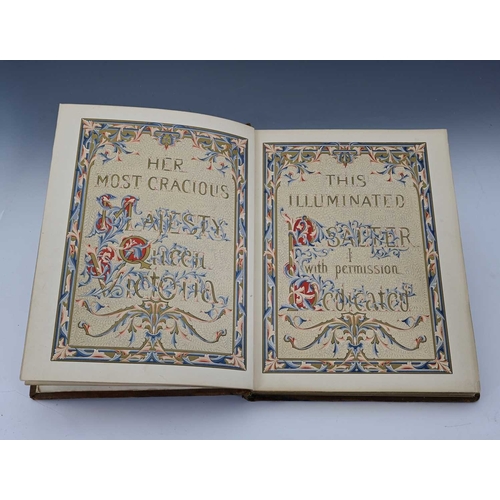 HER
MOST GRACIOUS
MAJESTY
QUEEN
VICTORIA
THIS
ILLUMINATED
PSALTER
is
with permission
Dedicated